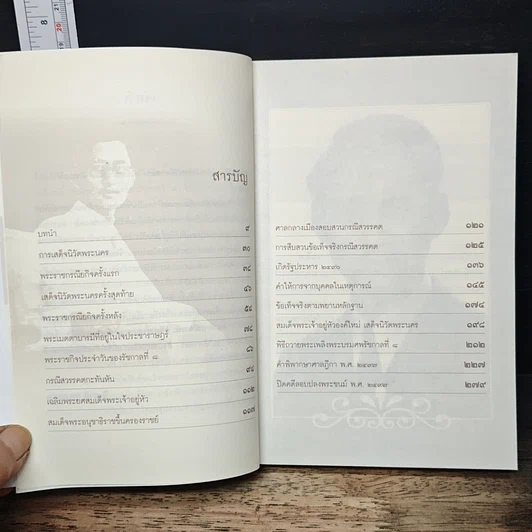 8
20
21
สารบัญ
บทนำ ๙
การเสด็จนิวัตพระนคร ๓๐
พระราชกรณียกิจครั้งแรก ๓๘
เสด็จนิวัตพระนครครั้งสุดท้าย ๔๖
พระราชกรณียกิจครั้งหลัง ๕๔
พระเมตตาบารมีที่อยู่ในใจประชาราษฎร์ ๗๘
พระราชกิจประจำวันของรัชกาลที่ ๘ ๘๙
กรณีสวรรคตกะทันหัน ๙๔
เฉลิมพระยศสมเด็จพระเจ้าอยู่หัว ๑๑๒
สมเด็จพระอนุชาธิราชขึ้นครองราชย์ ๑๑๗
ศาลกลางเมืองสอบสวนกรณีสวรรคต ๑๒๑
การสืบสวนข้อเท็จจริงกรณีสวรรคต ๑๒๕
เกิดรัฐประหาร ๒๔๙๐ ๑๓๖
คำให้การจากบุคคลในเหตุการณ์ ๑๔๕
ข้อเท็จจริงตามพยานหลักฐาน ๑๗๔
สมเด็จพระเจ้าอยู่หัวองค์ใหม่ เสด็จนิวัตพระนคร ๑๙๘
พิธีถวายพระเพลิงพระบรมศพรัชกาลที่ ๘ ๒๑๒
คำพิพากษาศาลฎีกา พ.ศ. ๒๔๙๗ ๒๒๗
ปิดคดีลอบปลงพระชนม์ พ.ศ. ๒๔๙๗ ๒๗๙